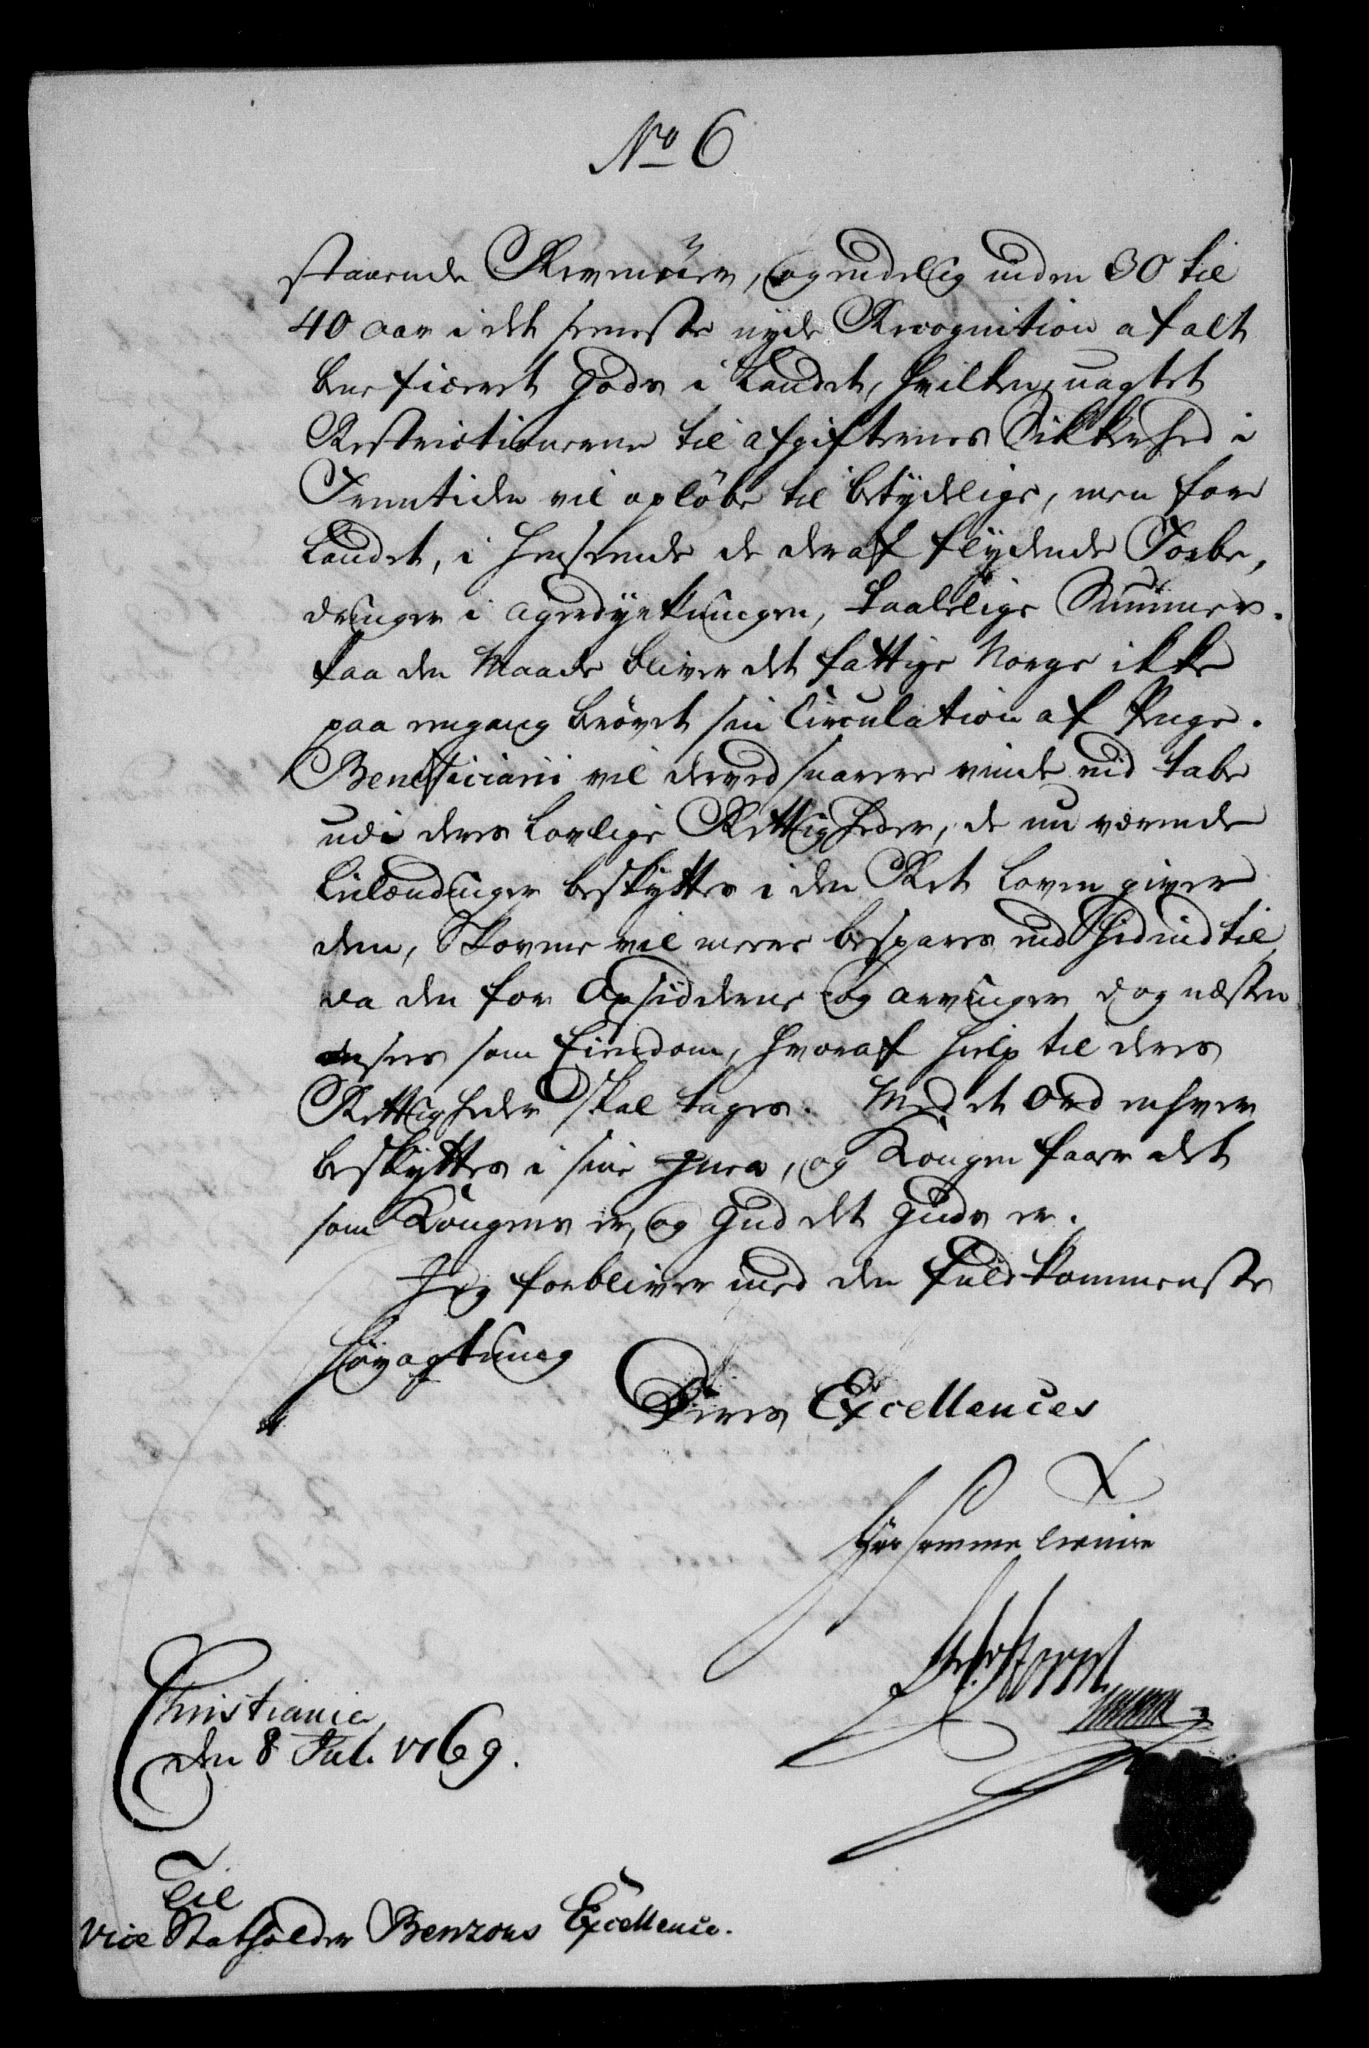 No 6
staaende Revenüer, og endelig inden 30 til
40 aar i det seneste nyde Recognition af alt
beneficeret Gods i Landet, hvilken uagtet
Restrictionerne til afgifternes Sikkerhed i
Fremtiden vil opløbe til betydelige, men for
Landet, i henseende de deraf flydende Forbe,
dringer i agerdyrkningen, taalelige Summer.
Paa den Maade bliver det fattige Norge ikke
paa engang berøvet sin Circulation af Penge.
Beneficiarii vil derved snarere vinde end tabe
udi deres lovlige Rettigheder, de nu værende
Leilændinger beskyttes i den Ret Loven giver
dem, Skovene vil mere bespares end hidindtil,
da den for Opsiddere og arvinger dog næsten
ansees som Eiendom, hvoraf hielp til deres
Rettigheder skal tages. Med et Ord enhver
beskyttes i sine , og Kongen faaer det
som Kongens er, og Gud det Guds er.
Jeg forbliver med den fuldkommenste
høyagtning
Deres Excellences
hørsomme tienere
Christiania
den 8 Jul. 1769.
Til
Vice Statholder Benzons Excellence.